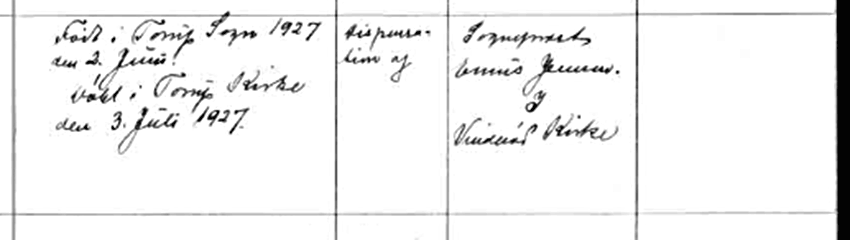 Født i Torup Sogn 1927
den 2. Juni.
Døbt i Torup Kirke
den 3. Juli 1927.
Dispensa-
tion af
Sognepræst
Jensen.
I
Vinderød Kirke